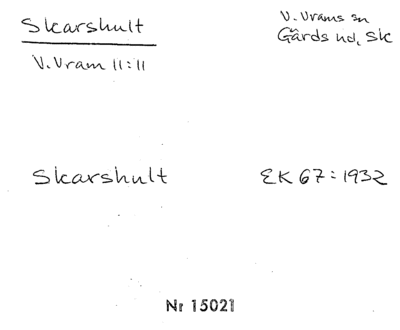 Skarshult
V. Vrams sn
Gärds hd, Sk
V. Vram 11:11
Skarshult
EK 67:1932
Nr 15021